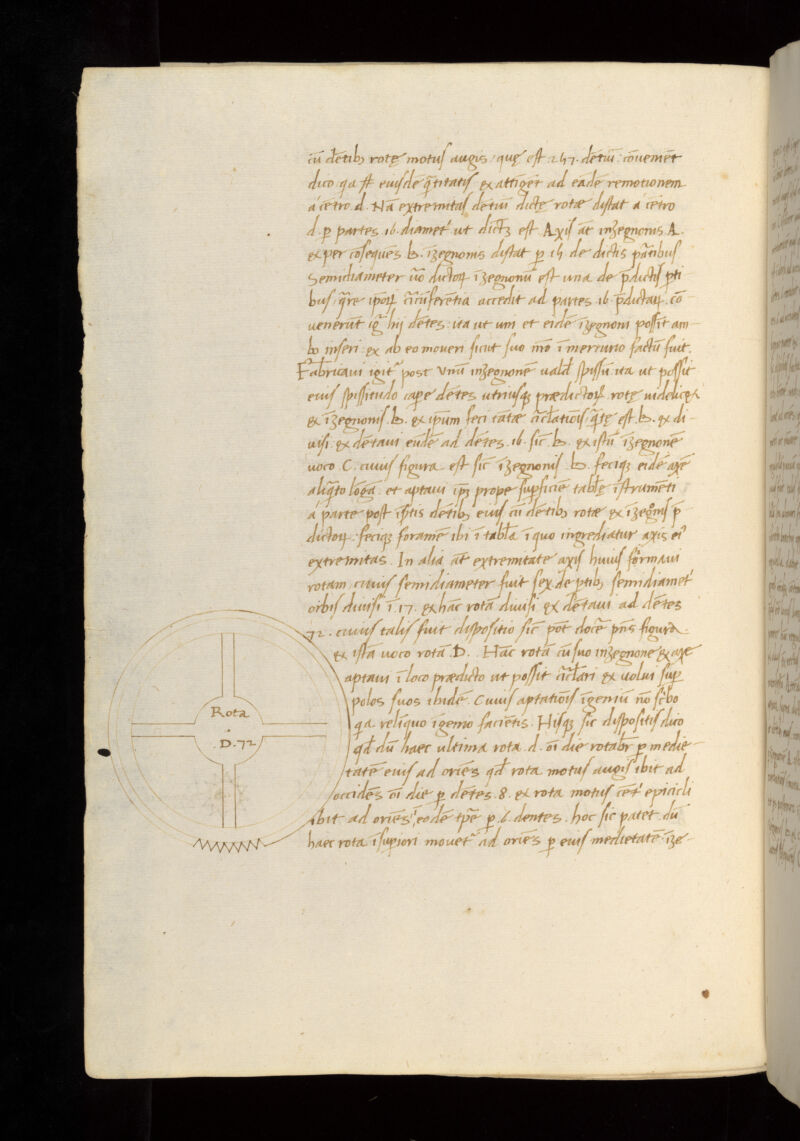 cū dētib₉ rotę motus augis, quę est 2 4 7. dētiū: cōuemēt
dico qa st̄ eiusdē q̄ntitatis & attīgēt ad eādē remotionem
a cētro d. Nā extremitas dētiū dictę rotæ distat a cētro
d. ꝑ partes 16. diamet' ut dictꝫ est. Axis āt inꝫegnonis A.
& per cōseques b. iꝫegnonis distat ꝑ 15 de dictis partibus
Semidiameter ūo dictoꝝ iꝫegnonū est una de p̄dictis pti
bus: q̄re ipoꝝ cīcūferētia accedit ad partes 16 p̄dictaꝝ. cō
uenerūt ig' hij dētes: ita ut uni et eidē iꝫegnoni possit am-
bo inseri & ab eo moueri sicut suo mō ī mercurio factū fuit.
Fabricaui igit' post Vnū inꝫegnonē uald' spissū: ita ut possit
eius spissitudo cape dētes utriusqꝫ prædictoꝝ rotę uidelicꝫ
& iꝫegnonis b. & ipum feci tātæ cīc̄latiōis q̄tę est b. & di-
uisi & dētaui eūdē ad dētes 16. sic b. & istū iꝫegnonē
uoco C. cuius figura est sic iꝫegnonis b. feciqꝫ eidē axē
aliq̄to lōgā et aptaui ipꝫ prope supficiē tablę īstrumēti
a parte post ip̄tis dētib₉ eius cū dētib₉ rotæ & iꝫegnis p̄
dictoꝝ. feciqꝫ foramē ibi ī tabla ī quo ingrediatur axis ei'
extremitas. In alia āt extremitate axis huius formaui
rotam cuius semidiameter fuit sex de ptib₉ semidiamet'
orbis diuisi ī 17. & hāc rotā diuisi & dētaui ad dētes
72. cuius talis fuit dispositio sic pōt docē pn̄s figura.
& istā uoco rotā D. Hāc rotā cū suo inꝫegnone & axe
aptaui ī loco prædicto ut possit cīc̄lari & uolui sup
polos suos ibidē. Cuius aptatiōis īgeniū nō sc̄bo
qa relīquo īgenio faciētis. Hisqꝫ sic dispositis dico
qd' dū haec ultima rota d. oī die rotabr̄ ꝑ medie-
tatē eius ad oriēs qd' rota motus augis ibit ad
occidēs oī die ꝑ dētes 8. & rota motus cēt' epicicli
ibit ad oriēs, eodē tp̄e ꝑ 6. dentes. hoc sic patet dū
haec rota īsupiori mouet' ad oriēs ꝑ eius medietatē iꝫe-
Rota
. D. 72